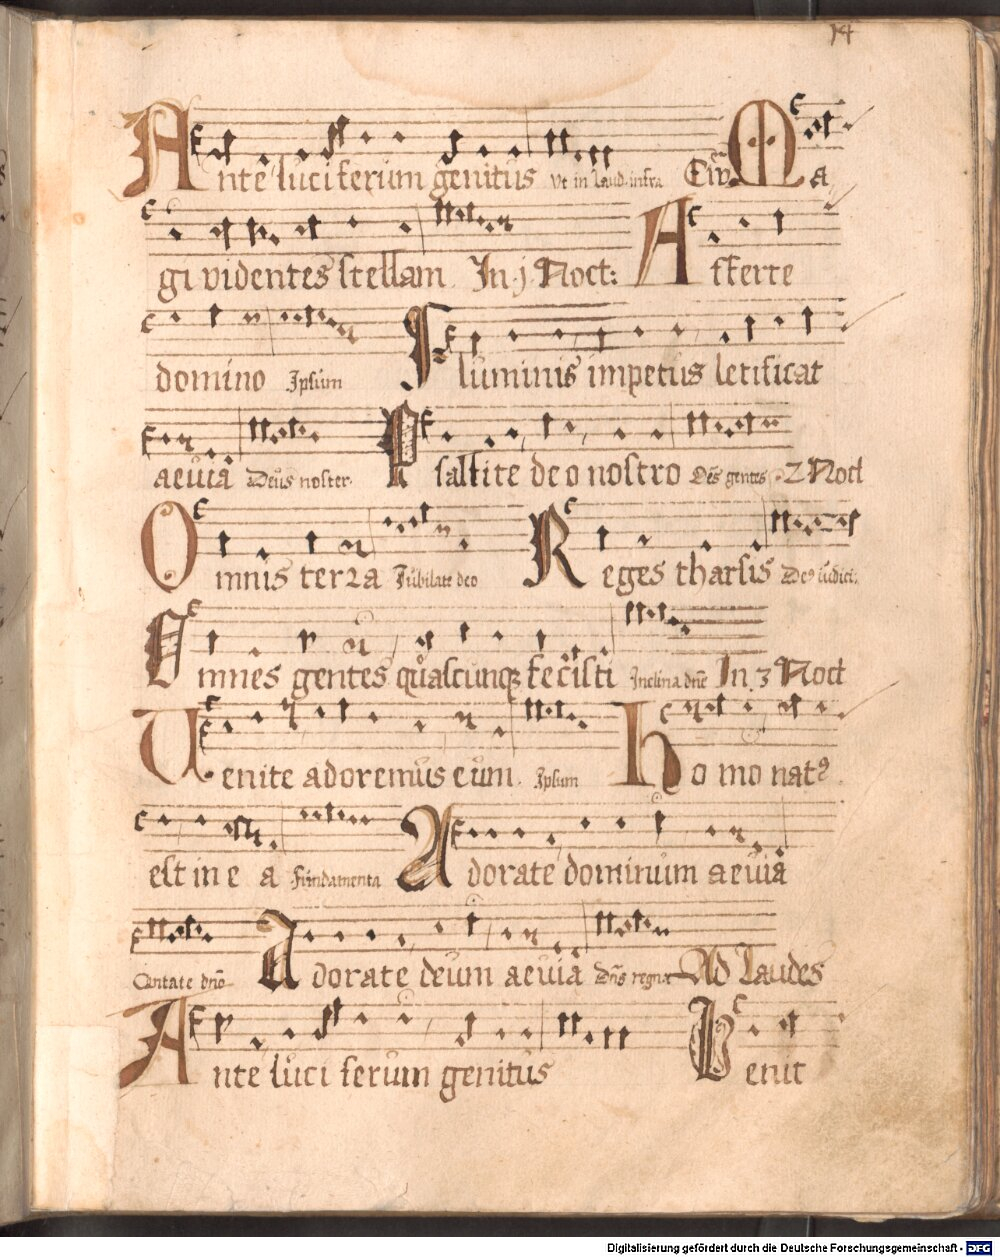 14
Ante luciferum genitus Vt in laud. infra Ma
gi videntes stellam In j Noct: Afferte
domino Ipsum Fluminis impetus letificat
aeuia Deus noster. Psallite deo nostro Oēs gentes. 2 Noct
Omnis terra Iubilate deo Reges tharsis
Omnes gentes quascunq fecisti Inclina dnē In 3 Noct
Uenite adoremus eum. Ipsum Homo nat9
est in ea Fundamenta Adorate dominum aeuia
Cantate dnō Adorate deum aeuia Dns regna Ad Laudes
Ante luciferum genitus Uenit
Digitalisierung gefördert durch die Deutsche Forschungsgemeinschaft - DFG